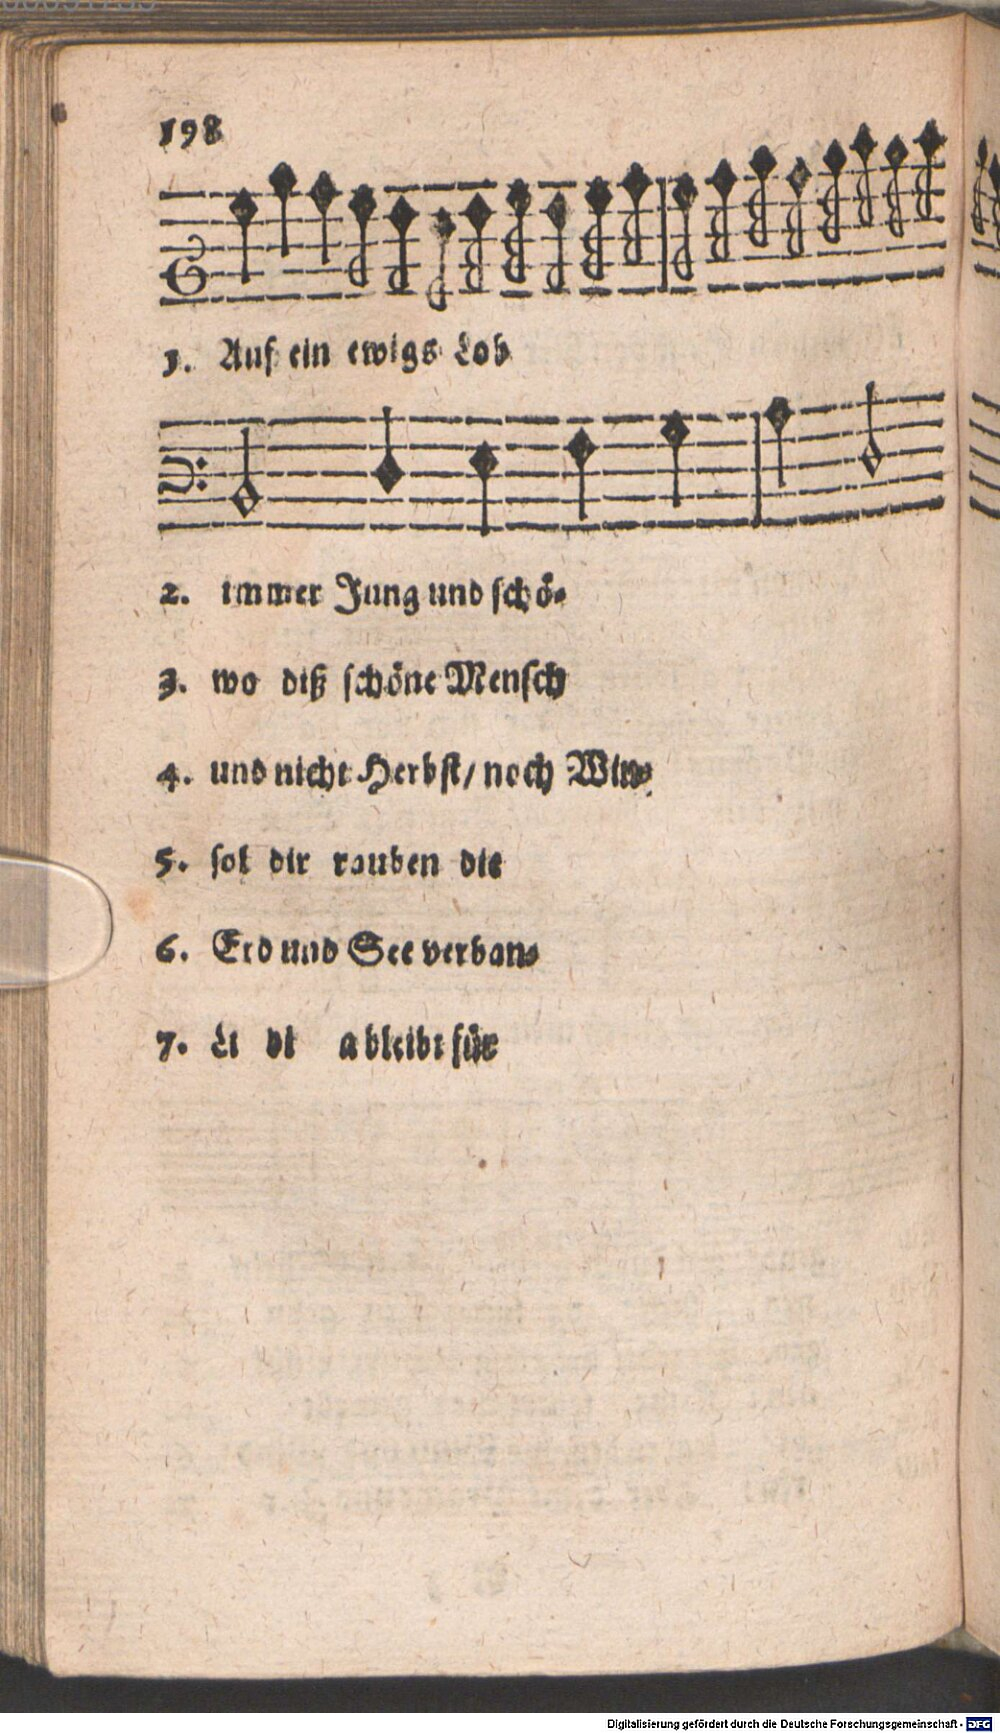 198
1. Auf ein ewigs Lob
2. immer Jung und schö-
3. wo diß schöne Mensch
4. und nicht Herbst/ noch Win-
5. sol dir rauben die
6. Erd und See verban-
7. bleibt für
Digitalisierung gefördert durch die Deutsche Forschungsgemeinschaft - DFG